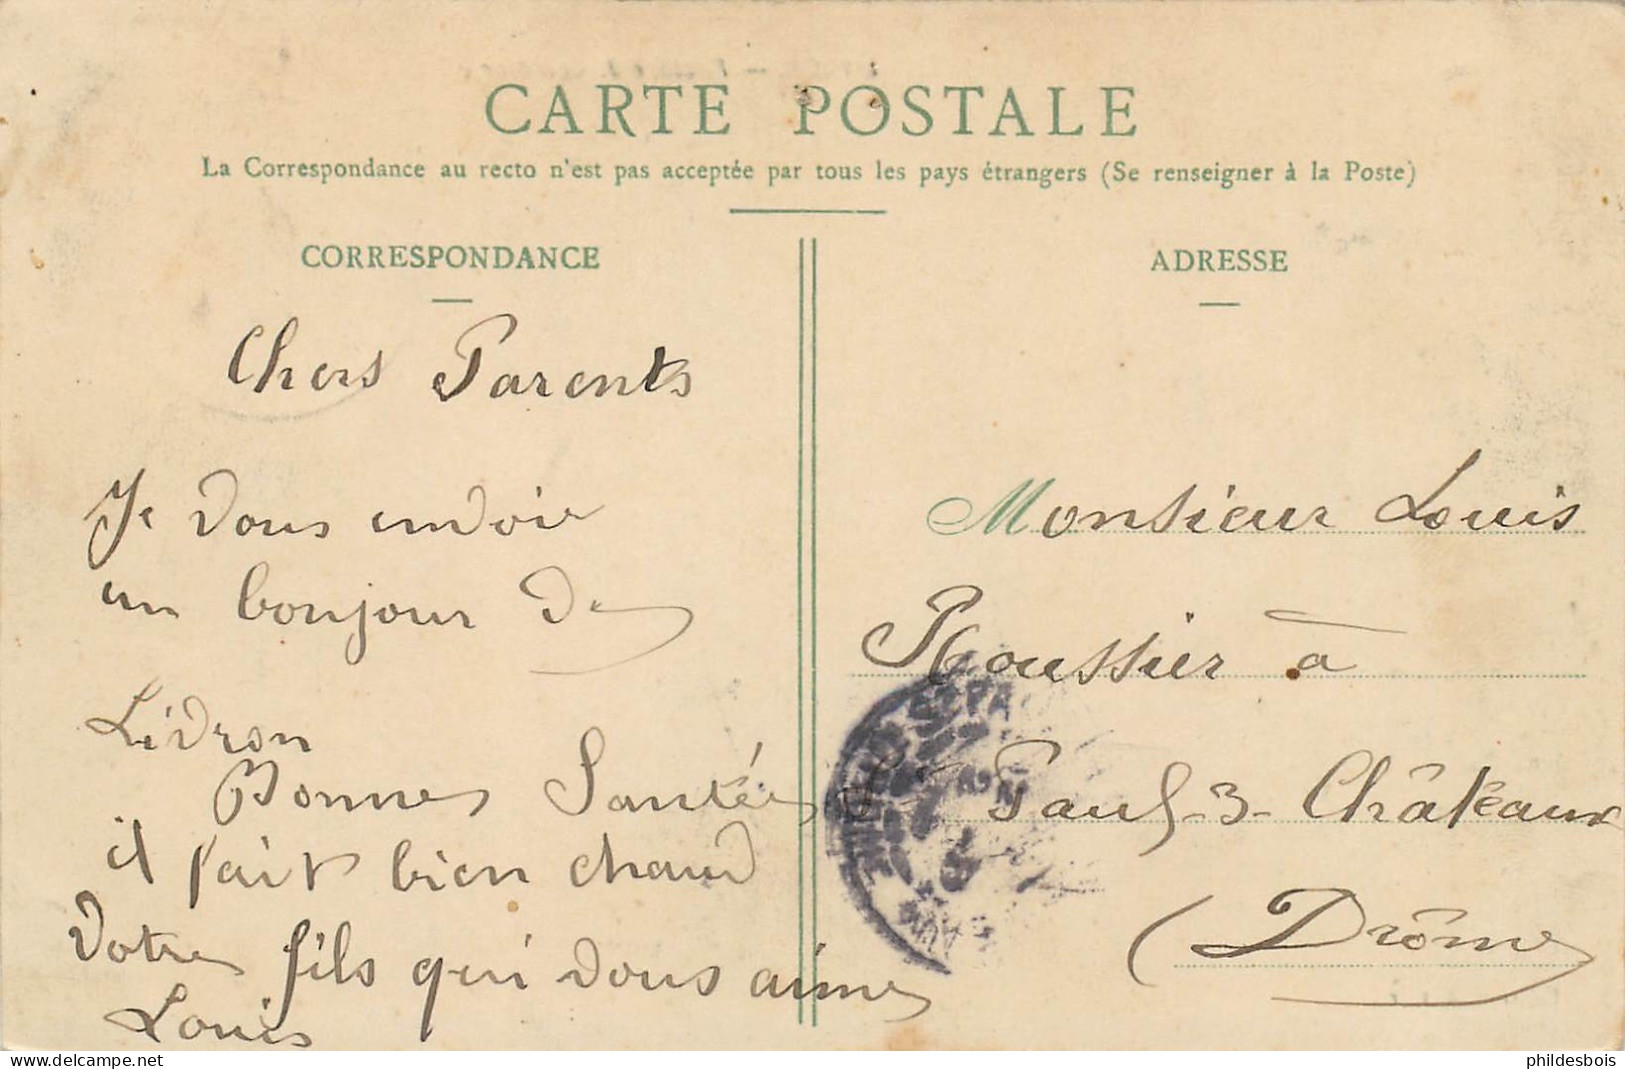 CARTE POSTALE
La Correspondance au recto n'est pas acceptée par tous les pays étrangers (Se renseigner à la Poste)
CORRESPONDANCE
Chers Parents
Je vous envoie
un bonjour de
Livron
Bonnes Santées
il fait bien chaud
Votre fils qui vous aime
Louis
ADRESSE
Monsieur Louis
Roussier à
St Paul-3-Châteaux
(Drôme
delcampe.net
phildesbois